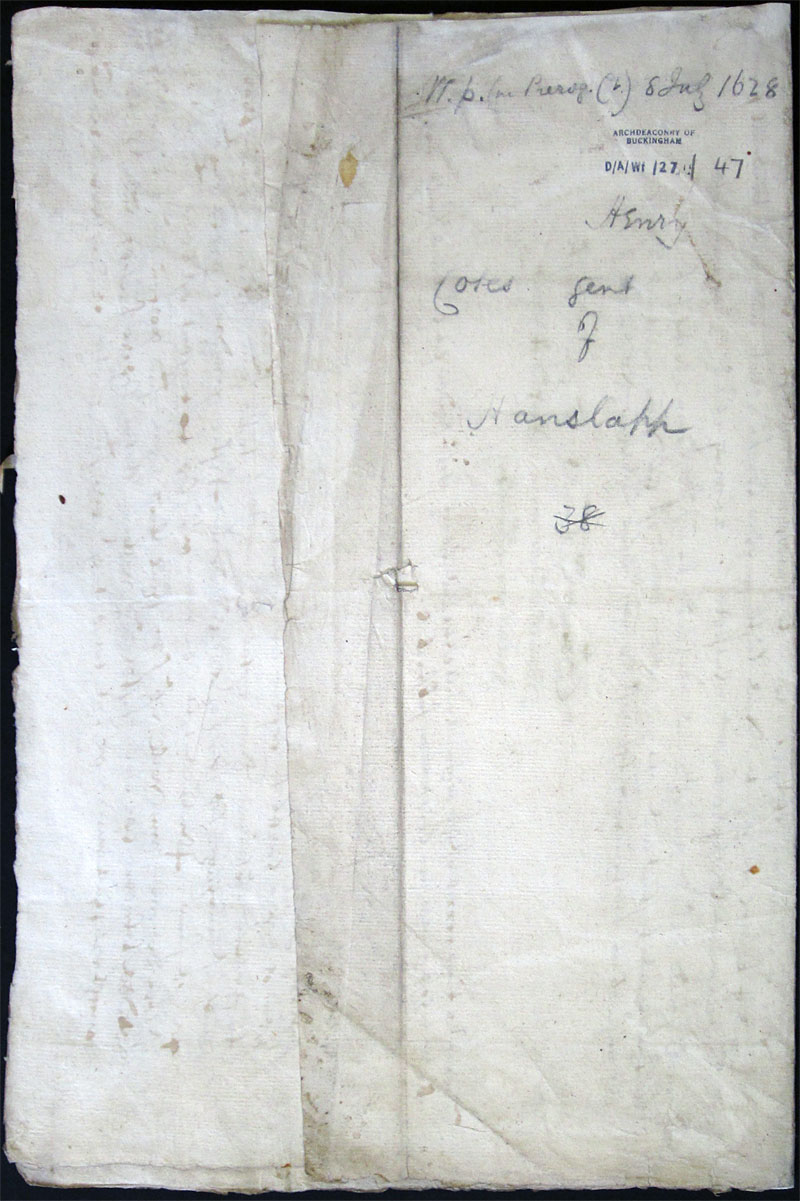 W. p. in Prerog. (L) 8 July 1628
ARCHDEACONRY OF
BUCKINGHAM
D/A/Wf /27 / 47
Henry
Cotes gent
of
Hanslapp
38